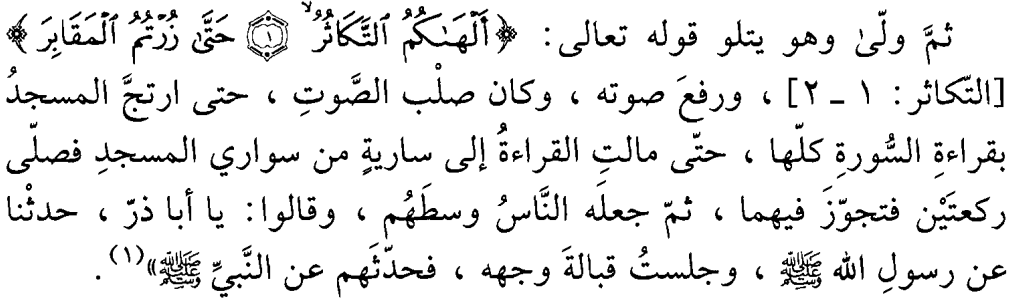 ثمَّ ولّىٰ وهو يتلو قوله تعالى : ﴿ أَلْهَىٰكُمُ التَّكَاثُرُ ۝١ حَتَّىٰ زُرْتُمُ الْمَقَابِرَ ﴾
[التّكاثر : ١ ـ ٢] ، ورفعَ صوته ، وكان صلْب الصَّوتِ ، حتى ارتجَّ المسجدُ
بقراءةِ السُّورةِ كلّها ، حتّى مالتِ القراءةُ إلى ساريةٍ من سواري المسجدِ فصلّى
ركعتَيْن فتجوّزَ فيهما ، ثمّ جعلَه النَّاسُ وسطَهُم ، وقالوا : يا أبا ذرّ ، حدثْنا
عن رسولِ الله ﷺ ، وجلستُ قبالةَ وجهه ، فحدّثَهم عن النَّبيِّ ﷺ»(١) .